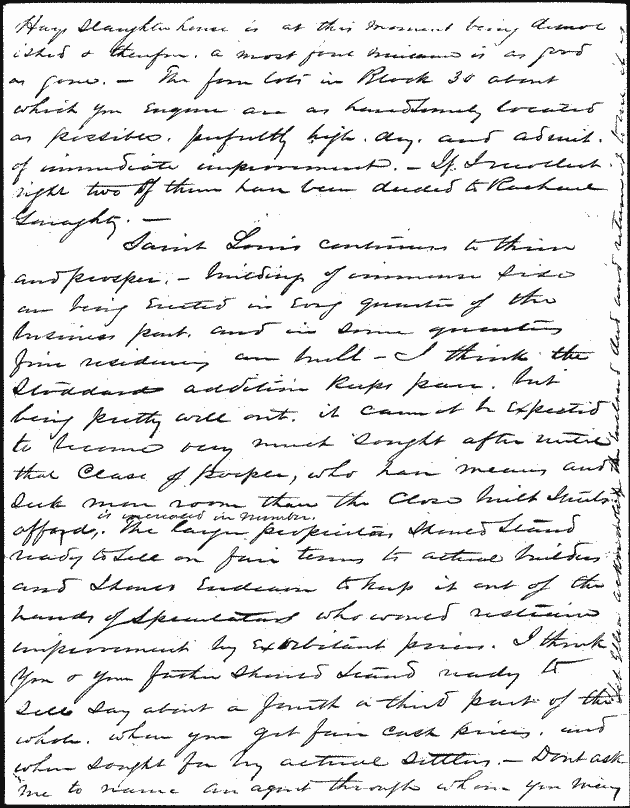 Hays Slaughter house is at this moment being demol
ished & therefore a most foul nuisance is as good
as gone. — The four lots in Block 30 about
which you enquire are as handsomely located
as possible. perfectly high. dry. and admit.
of immediate improvement. — If I recollect
right two of them have been deeded to Rachael
Garaghty. —
Saint Louis continues to thrive
and prosper. — buildings of immense size
are being erected in every quarter of the
business part. and in some quarters
fine residences are built — I think the
Stoddard addition keeps pace. but
being pretty well out. it cannot be expected
to become very much sought after until
that Class of people, who have means and
seek more room than the close built Streets
is increased in number.
afford,. The large proprietors should stand
ready to sell on fair terms to actual builders
and should endeavor to keep it out of the
hands of Speculators who would restrain
improvement by exorbitant prices. I think
you & your father should stand ready to
sell say about a fourth a third part of the
whole. when you get fair cash prices. and
when sought for by actual settlers. — Dont ask
me to name an agent through whom you may
Let Ellen acknowledge the enclosed deed and return it to me